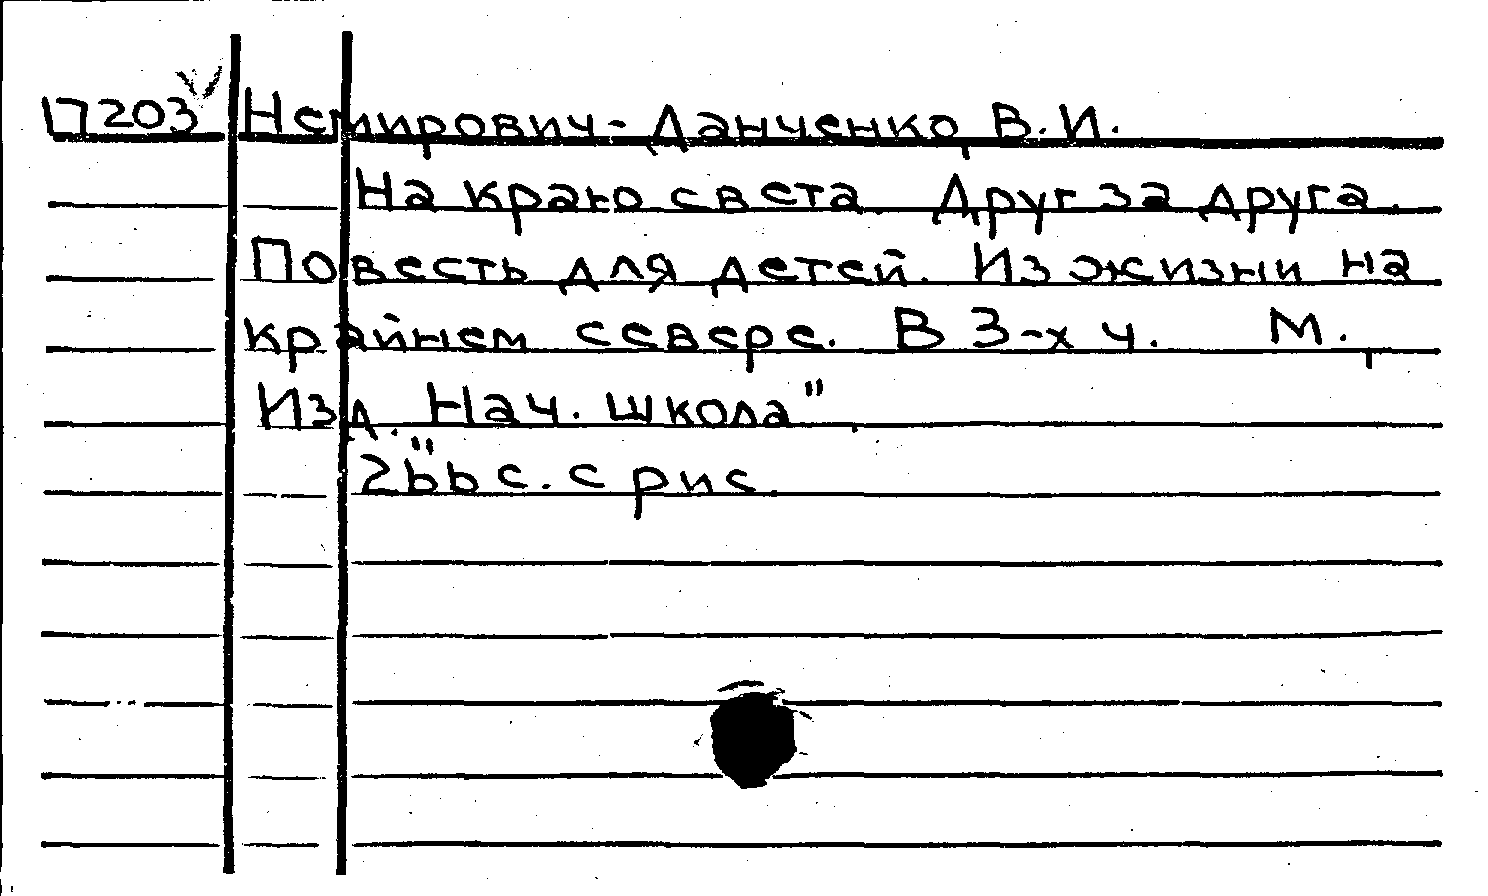 17203 Немирович-Данченко, В.И.
На краю света. Друг за друга.
Повесть для детей. Из жизни на
крайнем севере. В 3-х ч. М.,
Изд. "Нач. школа".
266 с. с рис.